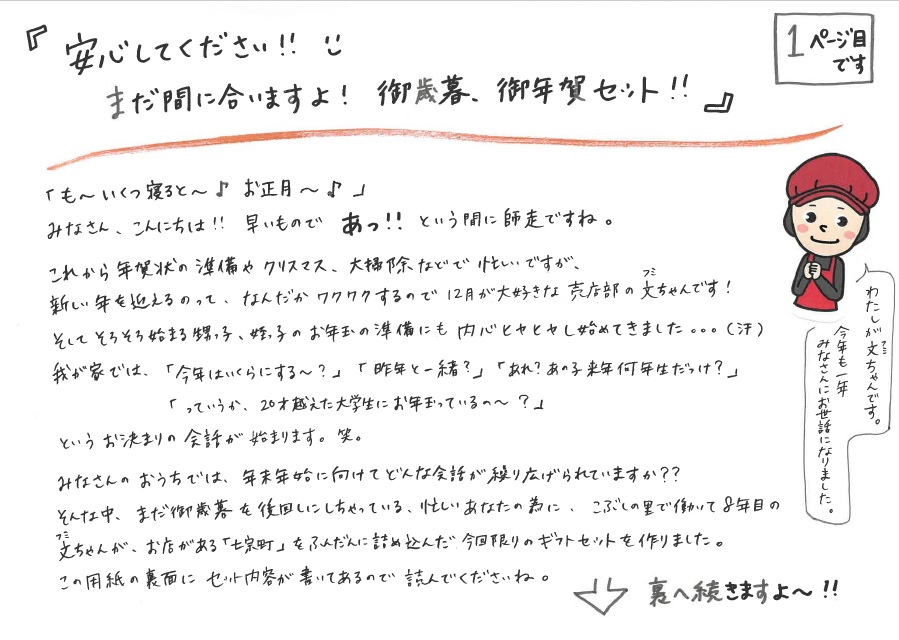 『安心してください!! 
まだ間に合いますよ! 御歳暮、御年賀セット!!』
1ページ目
です
「も〜いくつ寝ると〜♪ お正月〜♪」
みなさん、こんにちは!! 早いもので あっ!! という間に師走ですね。
これから年賀状の準備やクリスマス、大掃除などで忙しいですが、
新しい年を迎えるのって、なんだかワクワクするので12月が大好きな売店部の文ちゃんです!
フミ
そしてそろそろ始まる甥っ子、姪っ子のお年玉の準備にも内心ヒヤヒヤし始めてきました…(汗)
我が家では、「今年はいくらにする〜?」「昨年と一緒?」「あれ?あの子来年何年生だっけ?」
「っていうか、20才越えた大学生にお年玉っているの〜?」
というお決まりの会話が始まります。笑。
みなさんのおうちでは、年末年始に向けてどんな会話が繰り広げられていますか??
そんな中、まだ御歳暮を後回しにしちゃっている、忙しいあなたの為に、こぶしの里で働いて8年目の
フミ
文ちゃんが、お店がある「七宗町」をふんだんに詰め込んだ今回限りのギフトセットを作りました。
この用紙の裏面にセット内容が書いてあるので読んでくださいね。
裏へ続きますよ〜!!
わたしが文ちゃんです。
フミ
今年も一年
みなさんにお世話になりました。